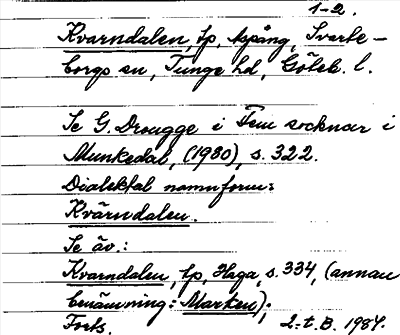 1-2.
Kvarndalen, tp, Aspång, Svarte-
borgs sn, Tunge hd, Göteb. l.
Se G. Drougge i Fem socknar i
Munkedal, (1980), s. 322.
Dialektal namnform:
Kvärndalen.
Se äv.:
Kvarndalen, tp, Haga, s. 334, (annan
benämning: Marken);
Forts. 2. t. B. 1984.